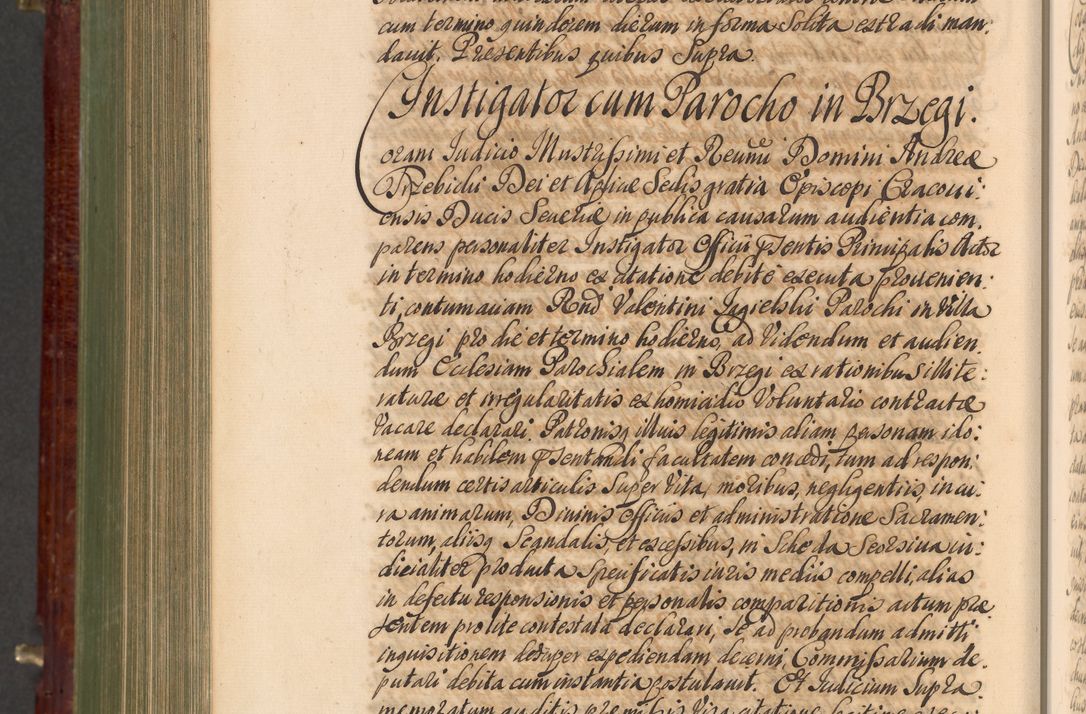 cum termino quindorem dierum in forma Solita extradi man:
dauit. Presentibus quibus Supra.
Instigator cum Parocho in Brzegi.
Coram Judicio Illustrissimi et Reuñi Domini Andreæ
Trzebicki Dei et Aplicæ Sedis gratia Episcopi Cracoui:
ensis Ducis Seueriæ in publica causarum audientia com
parens personaliter Instigator Officii pñtis Principalis Actor
in termino hodierno ex citatione debite executa prouenien:
ti, contumaciam Rndi Valentini Jagielski Parochi in Villa
Brzegi pro die et termino hodierno, ad Videndum et audien.
dum Ecclesiam Parochialem in Brzegi ex rationibus illite:
raturæ et irregularitatis ex homicidio Voluntario contractæ
Vacare declarari. Patronisq illius legitimis aliam personam ido:
neam et habilem pñtandi facultatem concedi, tum ad respon:
dendum certis articulis Super Vita, moribus, negligentiis, in cu:
ra animarum, Diuinis Officiis et administratione Sacramen:
torum, aliisq Scandalis, et excessibus, in Scheda Seorsiua iu:
dicialiter producta Specificatis iuris mediis compelli, alias
in defectu responsionis et personalis comparitionis actum præ
sentem pro lite contestata declarari, Se ad probandum admitti
inquisitionem desuper expediendam decerni, Commissarium de:
putari debita cum instantia postulauit. Et Iudicium Supra
memoratum auditis præmissis Visa citatione legitime